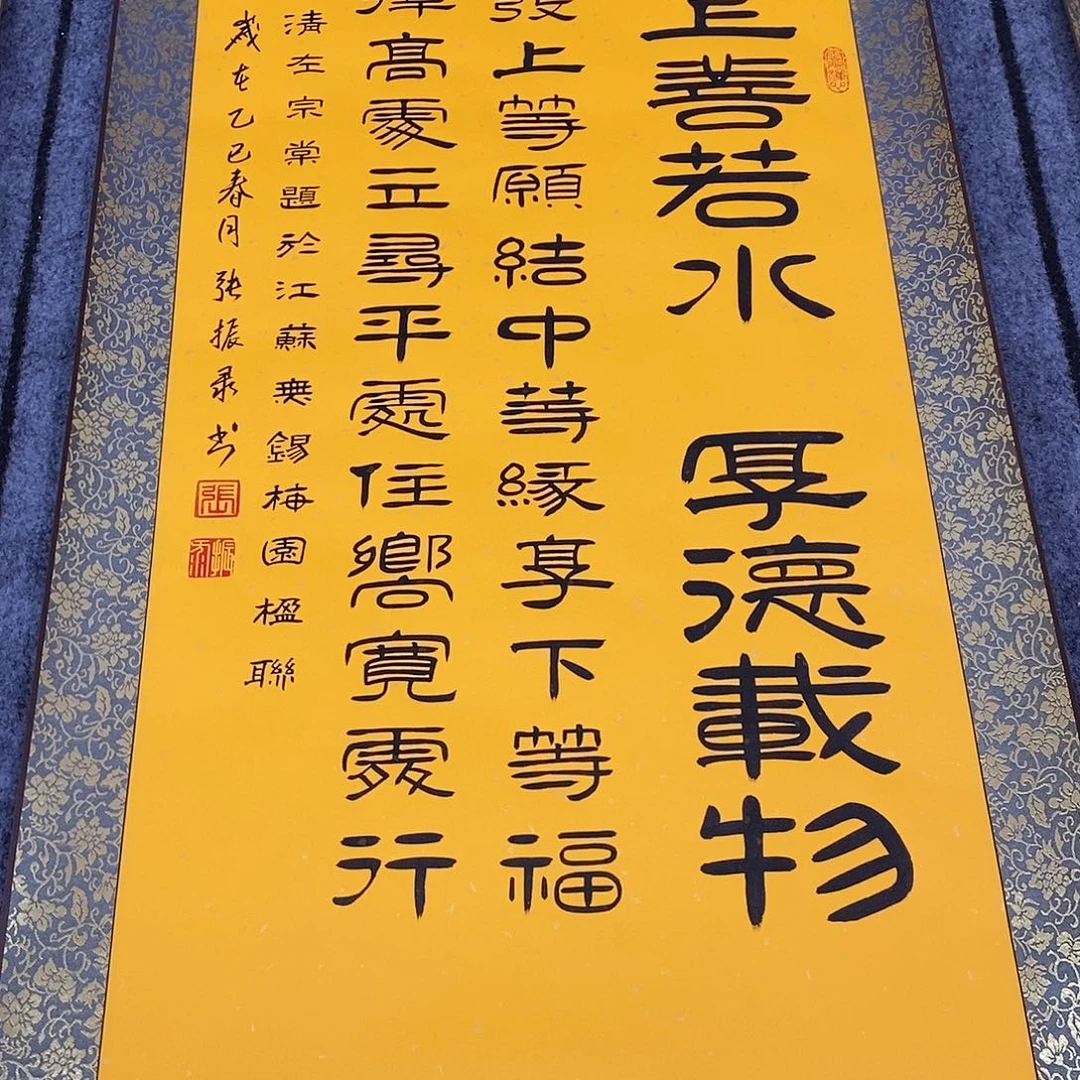 上善若水 厚德載物
發上等願結中等緣享下等福
擇高處立尋平處住嚮寬處行
清左宗棠題於江蘇無錫梅園楹聯
歲在乙巳春月张振录书
張